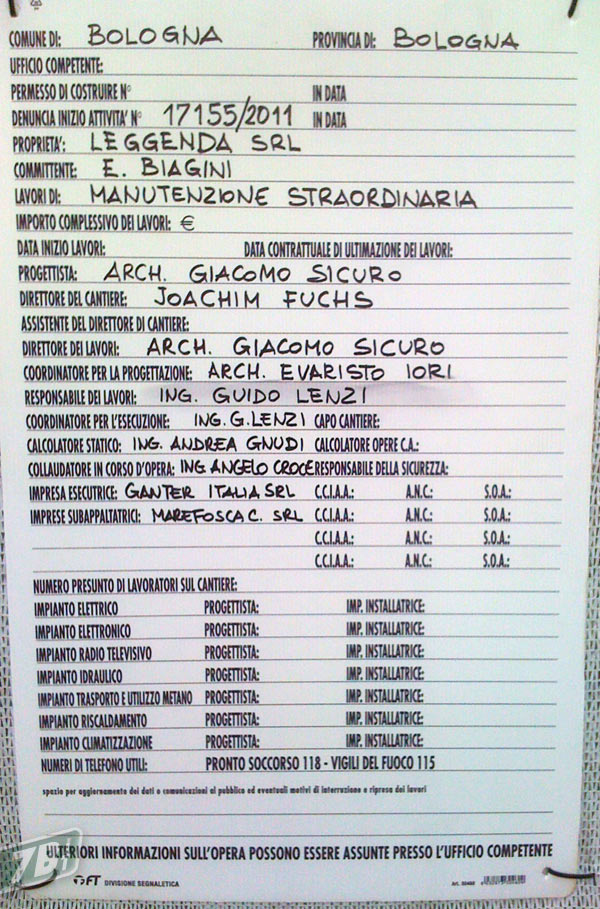 COMUNE DI: BOLOGNA PROVINCIA DI: BOLOGNA
UFFICIO COMPETENTE:
PERMESSO DI COSTRUIRE N° IN DATA
DENUNCIA INIZIO ATTIVITA' N° 17155/2011 IN DATA
PROPRIETA': LEGGENDA SRL
COMMITTENTE: E. BIAGINI
LAVORI DI: MANUTENZIONE STRAORDINARIA
IMPORTO COMPLESSIVO DEI LAVORI: €
DATA INIZIO LAVORI: DATA CONTRATTUALE DI ULTIMAZIONE DEI LAVORI:
PROGETTISTA: ARCH. GIACOMO SICURO
DIRETTORE DEL CANTIERE: JOACHIM FUCHS
ASSISTENTE DEL DIRETTORE DI CANTIERE:
DIRETTORE DEI LAVORI: ARCH. GIACOMO SICURO
COORDINATORE PER LA PROGETTAZIONE: ARCH. EVARISTO IORI
RESPONSABILE DEI LAVORI: ING. GUIDO LENZI
COORDINATORE PER L'ESECUZIONE: ING. G. LENZI CAPO CANTIERE:
CALCOLATORE STATICO: ING. ANDREA GNUDI CALCOLATORE OPERE C.A.:
COLLAUDATORE IN CORSO D'OPERA: ING ANGELO CROCE RESPONSABILE DELLA SICUREZZA:
IMPRESA ESECUTRICE: GANTER ITALIA SRL C.C.I.A.A.: A.N.C.: S.O.A.:
IMPRESE SUBAPPALTATRICI: MAREFOSCA C. SRL C.C.I.A.A.: A.N.C.: S.O.A.:
C.C.I.A.A.: A.N.C.: S.O.A.:
C.C.I.A.A.: A.N.C.: S.O.A.:
NUMERO PRESUNTO DI LAVORATORI SUL CANTIERE:
IMPIANTO ELETTRICO PROGETTISTA: IMP. INSTALLATRICE:
IMPIANTO ELETTRONICO PROGETTISTA: IMP. INSTALLATRICE:
IMPIANTO RADIO TELEVISIVO PROGETTISTA: IMP. INSTALLATRICE:
IMPIANTO IDRAULICO PROGETTISTA: IMP. INSTALLATRICE:
IMPIANTO TRASPORTO E UTILIZZO METANO PROGETTISTA: IMP. INSTALLATRICE:
IMPIANTO RISCALDAMENTO PROGETTISTA: IMP. INSTALLATRICE:
IMPIANTO CLIMATIZZAZIONE PROGETTISTA: IMP. INSTALLATRICE:
NUMERI DI TELEFONO UTILI: PRONTO SOCCORSO 118 - VIGILI DEL FUOCO 115
spazio per aggiornamento dei dati o comunicazioni al pubblico ed eventuali motivi di interruzione o ripresa dei lavori
ULTERIORI INFORMAZIONI SULL'OPERA POSSONO ESSERE ASSUNTE PRESSO L'UFFICIO COMPETENTE
FT DIVISIONE SEGNALETICA Art.